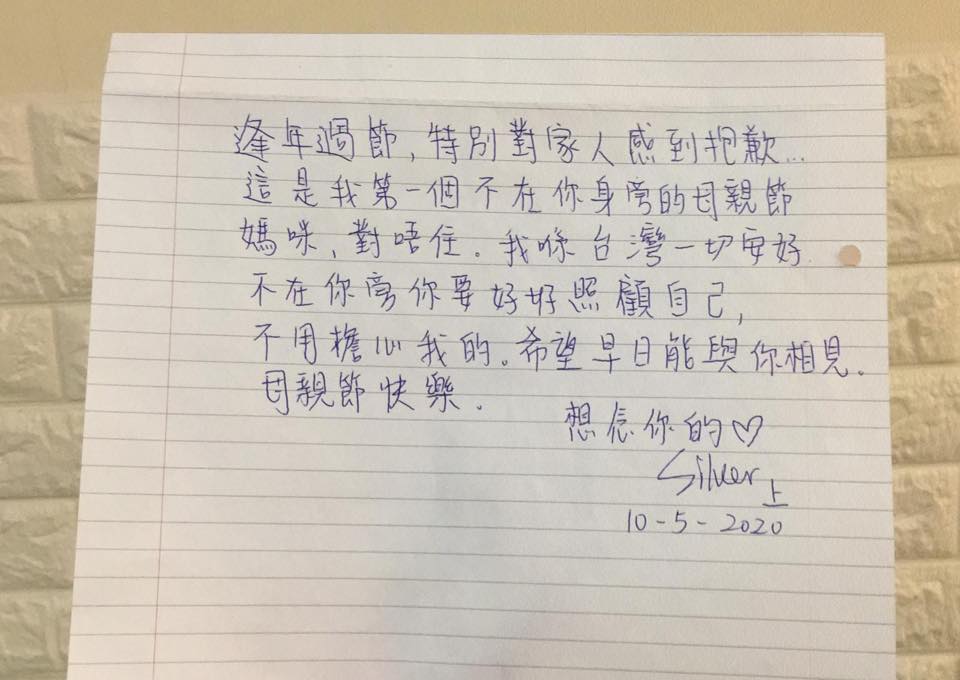 逢年過節,特別對家人感到抱歉...
這是我第一個不在你身旁的母親節
媽咪,對唔住。我喺台灣一切安好.
不在你旁你要好好照顧自己,
不用擔心我的。希望早日能與你相見。
母親節快樂.
想念你的♡
Silver上
10-5-2020